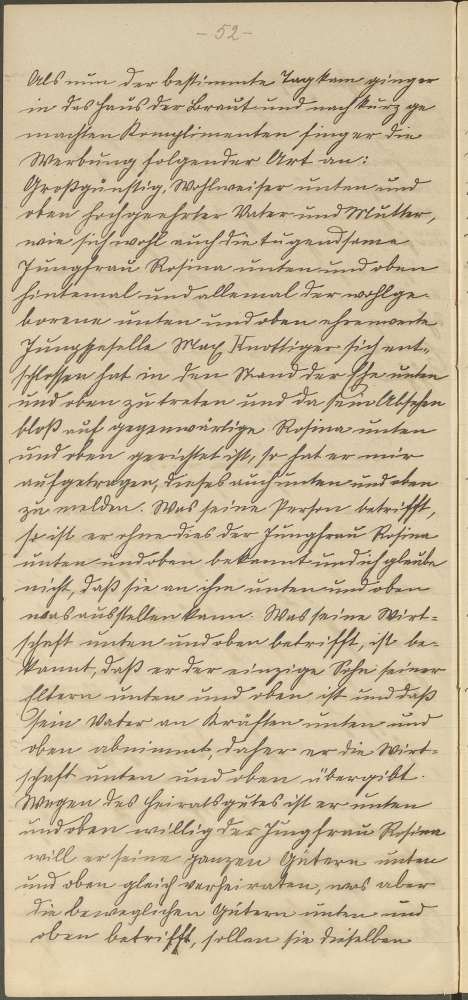 - 52 -
Als nun der bestimmte Tag kam ging er
in das Haus der Braut und nach kurz ge
machten Komplimenten fing er die
Werbung folgender Art an:
Großgünstig, Wohlweiser unten und
oben hochgeehrter Vater und Mutter,
wie sich wohl auch die tugendsame
Jungfrau Rosina unten und oben
hintemal und allemal der wohlge-
borene unten und oben ehrenwerte
Junggeselle Max Knottiger sich ent-
schlossen hat in den Stand der Ehe unten
und oben zu treten und da sein Absehen
bloß auf gegenwärtige Rosina unten
und oben gerichtet ist, so hat er mir
aufgetragen, dieses auch unten und oben
zu melden. Was seine Person betrifft,
so ist er ohne dies der Jungfrau Rosina
unten und oben bekannt und ich glaube
nicht, daß sie an ihm unten und oben
was ausstellen kann. Was seine Wirt-
schaft unten und oben betrifft, ist be-
kannt, daß er der einzige Sohn seiner
Eltern unten und oben ist und daß
sein Vater an Kräften unten und
oben abnimmt, daher er die Wirt-
schaft unten und oben übergibt.
Wegen des Heiratsgutes ist er unten
und oben willig der Jungfrau Rosina
will er seine ganzen Gütern unten
und oben gleich verheiraten, was aber
die beweglichen Gütern unten und
oben betrifft, sollen sie dieselben